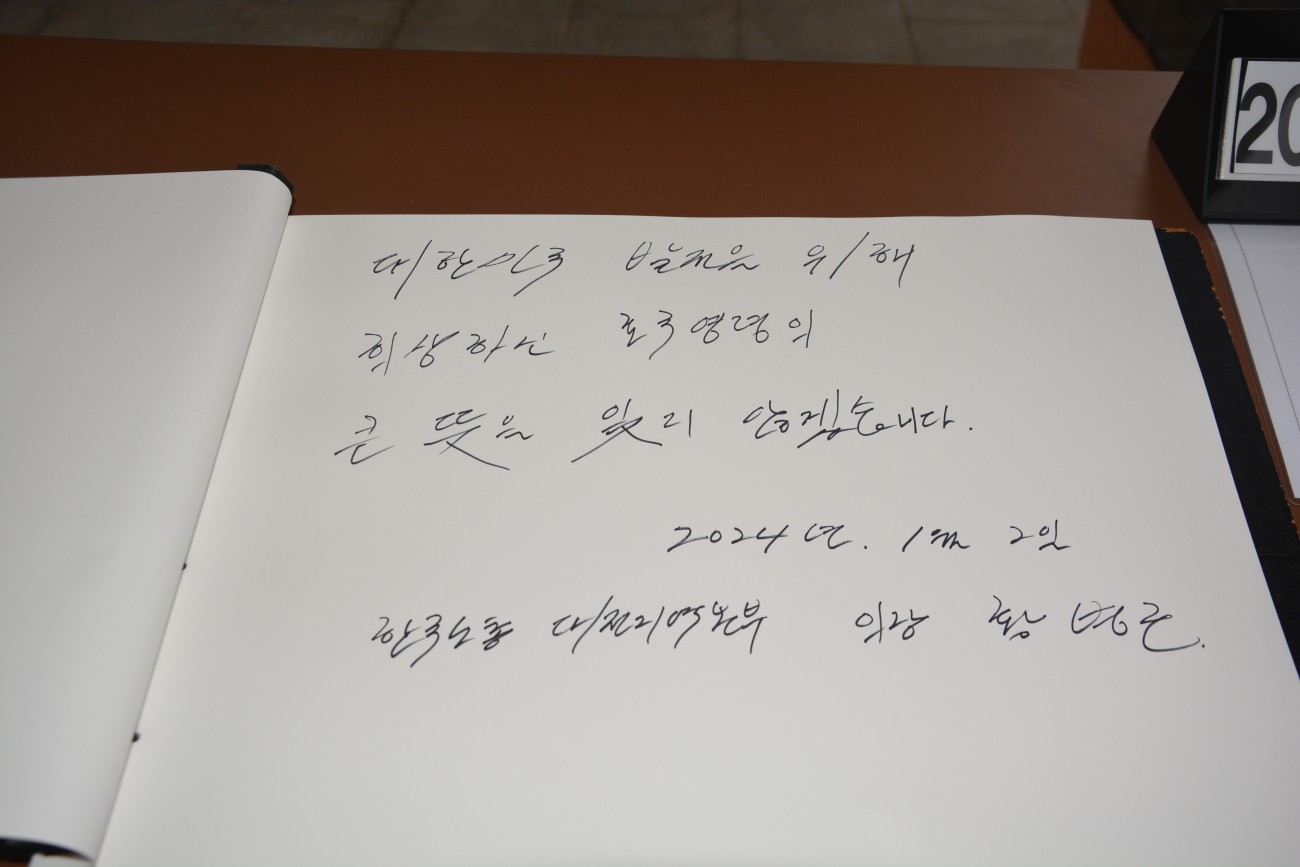 대한민국 발전을 위해
희생하신 호국영령의
큰 뜻을 잊지 않겠습니다.
2024년. 1월 2일
한국노총 대전지역본부 의장 황병근.
20